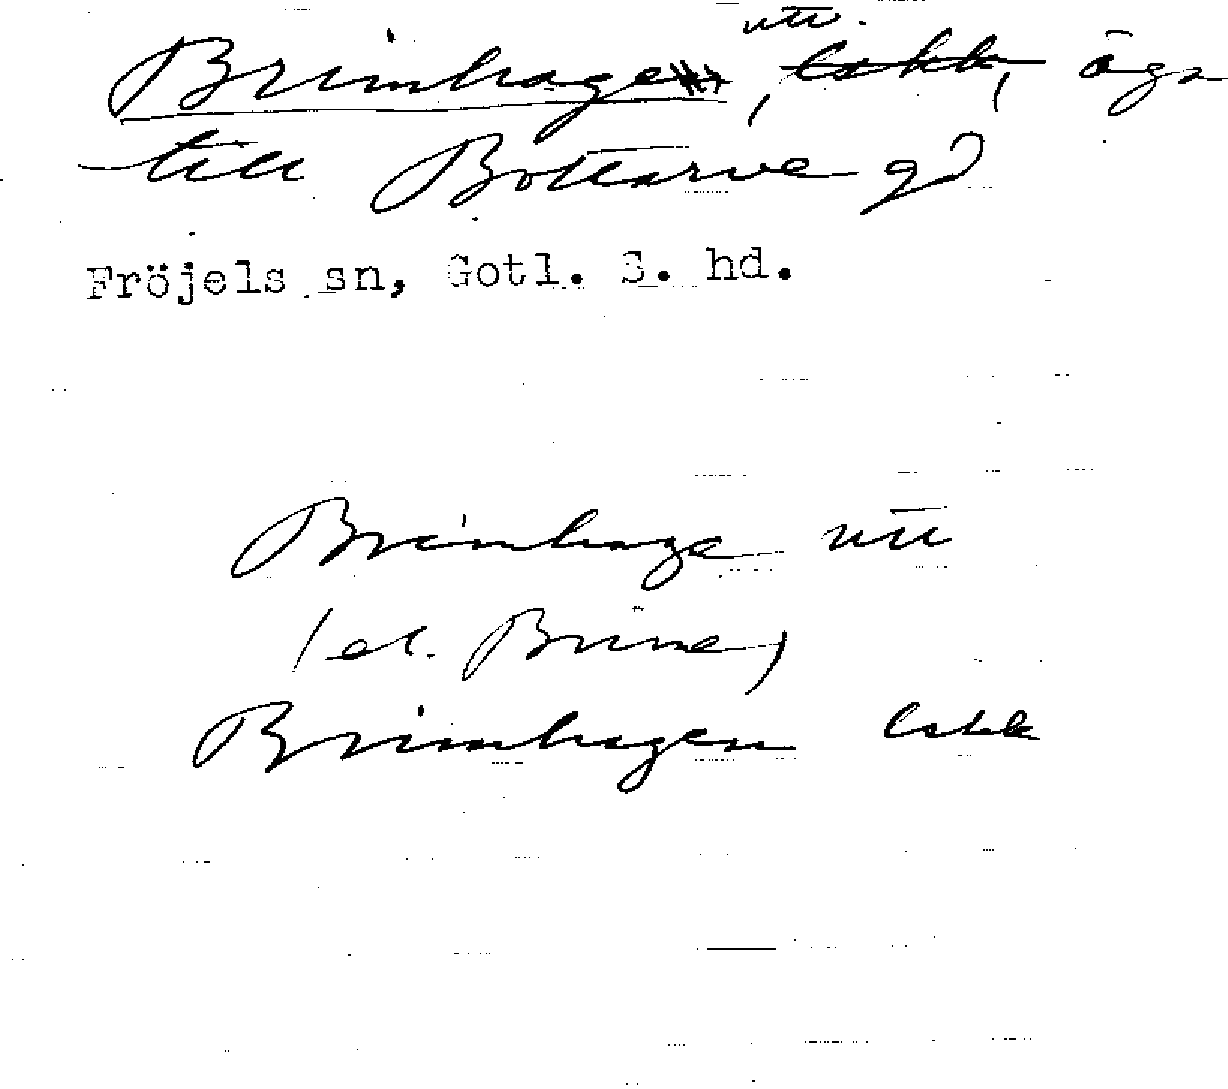 utt.
Brimhage, lokk, äga
till Bottarve gd
Fröjels sn, Gotl. S. hd.
Brimhage utt
(el. Brime)
Brimhagen lokk